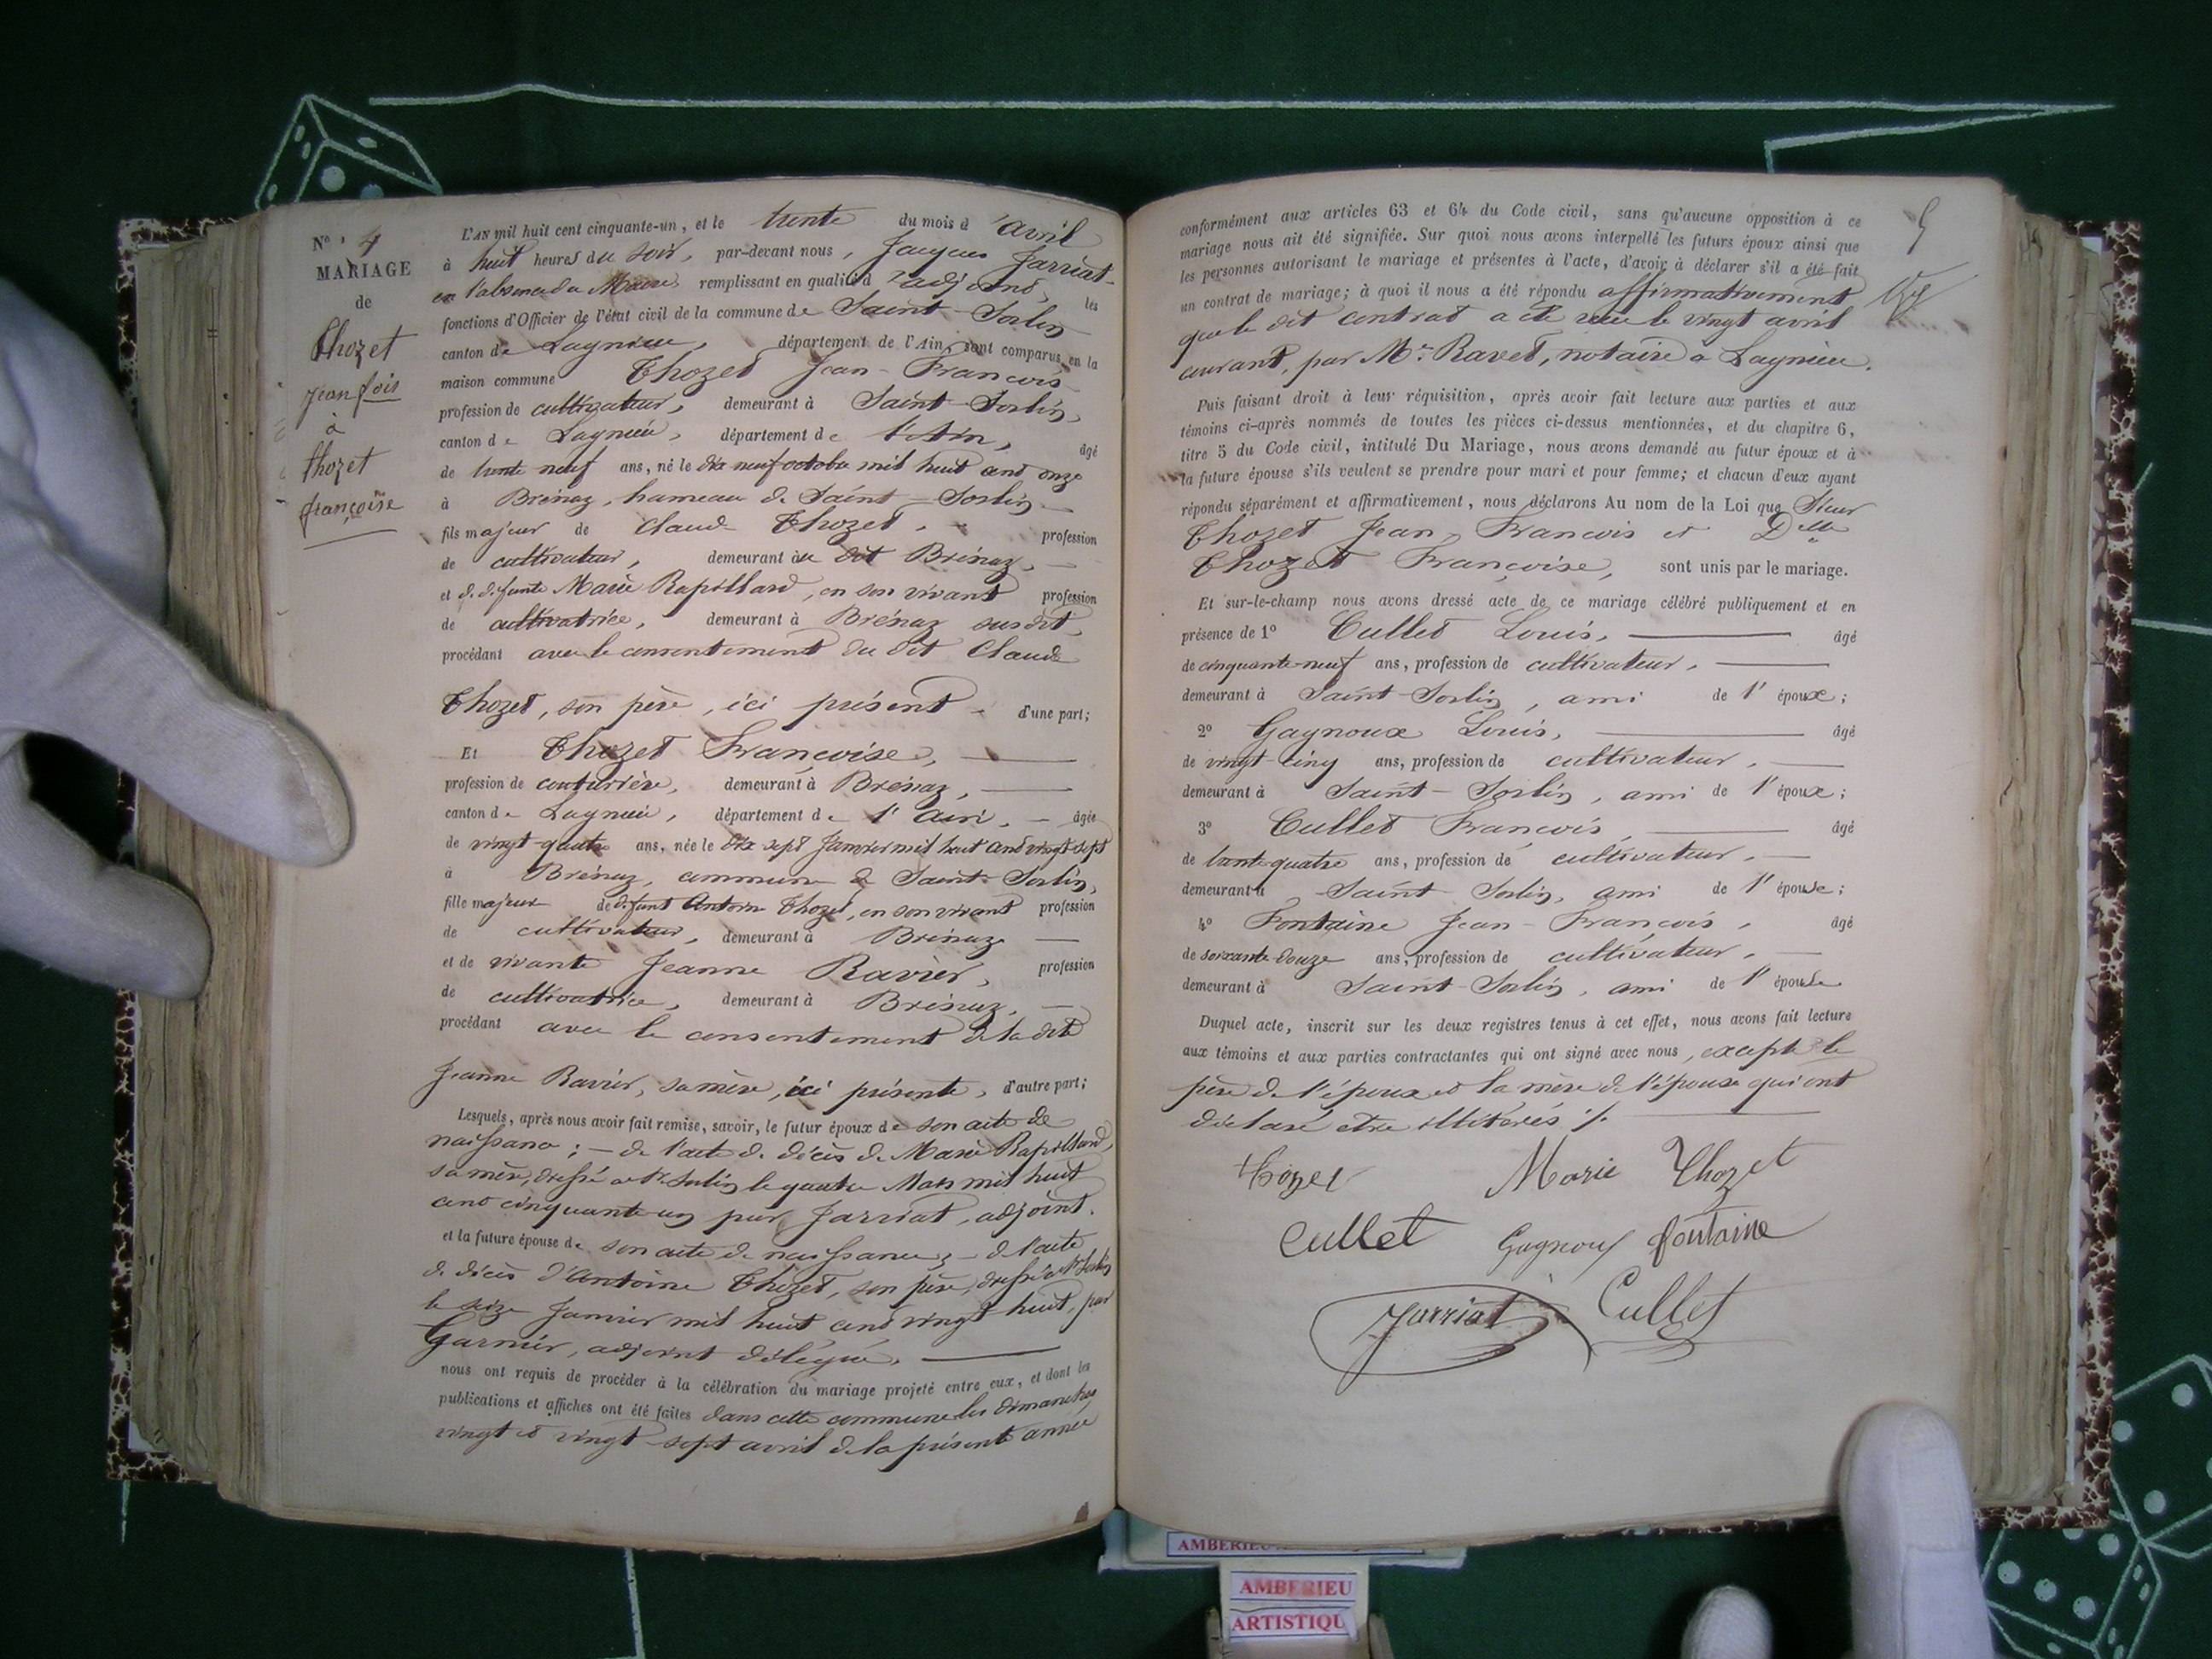 N° 4
MARIAGE
de
Thozet
Jean fois
à
Thozet
françoise
L'AN mil huit cent cinquante-un, et le trente du mois d'avril
à huit heures du soir, par-devant nous, Jacques Jarriat
en l'absence du Maire, remplissant en qualité d'adjoint, les
fonctions d'Officier de l'état civil de la commune de Saint-Sorlin
canton de Lagnieu, département de l'Ain, sont comparus en la
maison commune Thozet Jean-François
profession de cultivateur, demeurant à Saint-Sorlin,
canton de Lagnieu, département de l'Ain, âgé
de trente neuf ans, né le dix neuf octobre mil huit cent onze
à Brénaz, hameau de Saint-Sorlin
fils majeur de Claude Thozet, profession
de cultivateur, demeurant au dit Brénaz,
et de défunte Marie Rapillard, en son vivant profession
de cultivatrice, demeurant à Brénaz susdit,
procédant avec le consentement du dit Claude
Thozet, son père, ici présent d'une part;
Et Thozet Françoise,
profession de couturière, demeurant à Brénaz,
canton de Lagnieu, département de l'Ain, âgée
de vingt-quatre ans, née le dix sept Janvier mil huit cent vingt sept
à Brénaz, commune de Saint-Sorlin,
fille majeure de défunt Antoine Thozet, en son vivant profession
de cultivateur, demeurant à Brénaz
et de vivante Jeanne Ravier, profession
de cultivatrice, demeurant à Brénaz,
procédant avec le consentement de la dite
Jeanne Ravier, sa mère, ici présente, d'autre part;
Lesquels, après nous avoir fait remise, savoir, le futur époux de son acte de
naissance; - de l'acte de décès de Marie Rapillard,
sa mère, dressé à St Sorlin le quatre Mars mil huit
cent cinquante-un par Jarriat, adjoint.
et la future épouse de son acte de naissance; - de l'acte
de décès d'Antoine Thozet, son père, dressé à St Sorlin
le seize Janvier mil huit cent vingt huit, par
Garnier, adjoint délégué,
nous ont requis de procéder à la célébration du mariage projeté entre eux, et dont les
publications et affiches ont été faites dans cette commune les dimanches
vingt et vingt-sept avril de la présente année
5
conformément aux articles 63 et 64 du Code civil, sans qu'aucune opposition à ce
mariage nous ait été signifiée. Sur quoi nous avons interpellé les futurs époux ainsi que
les personnes autorisant le mariage et présentes à l'acte, d'avoir à déclarer s'il a été fait
un contrat de mariage; à quoi il nous a été répondu affirmativement
que le dit contrat a été reçu le vingt avril
courant, par Me Ravet, notaire à Lagnieu.
Puis faisant droit à leur réquisition, après avoir fait lecture aux parties et aux
témoins ci-après nommés de toutes les pièces ci-dessus mentionnées, et du chapitre 6,
titre 5 du Code civil, intitulé Du Mariage, nous avons demandé au futur époux et à
la future épouse s'ils veulent se prendre pour mari et pour femme; et chacun d'eux ayant
répondu séparément et affirmativement, nous déclarons Au nom de la Loi que Sieur
Thozet Jean-François et Delle
Thozet Françoise, sont unis par le mariage.
Et sur-le-champ nous avons dressé acte de ce mariage célébré publiquement et en
présence de 1° Cullet Louis, âgé
de cinquante-neuf ans, profession de cultivateur,
demeurant à Saint-Sorlin, ami de l'époux;
2° Gagnoux Louis, âgé
de vingt-cinq ans, profession de cultivateur,
demeurant à Saint-Sorlin, ami de l'époux;
3° Cullet François, âgé
de trente-quatre ans, profession de cultivateur,
demeurant à Saint-Sorlin, ami de l'épouse;
4° Fontaine Jean-François, âgé
de soixante-douze ans, profession de cultivateur,
demeurant à Saint-Sorlin, ami de l'épouse
Duquel acte, inscrit sur les deux registres tenus à cet effet, nous avons fait lecture
aux témoins et aux parties contractantes qui ont signé avec nous, excepté le
père de l'époux et la mère de l'épouse qui ont
déclaré être illitérés ./.
thozet Marie Thozet
Cullet Gagnoux fontaine
Jarriat Cullet
AMBERIEU
ARTISTIQU